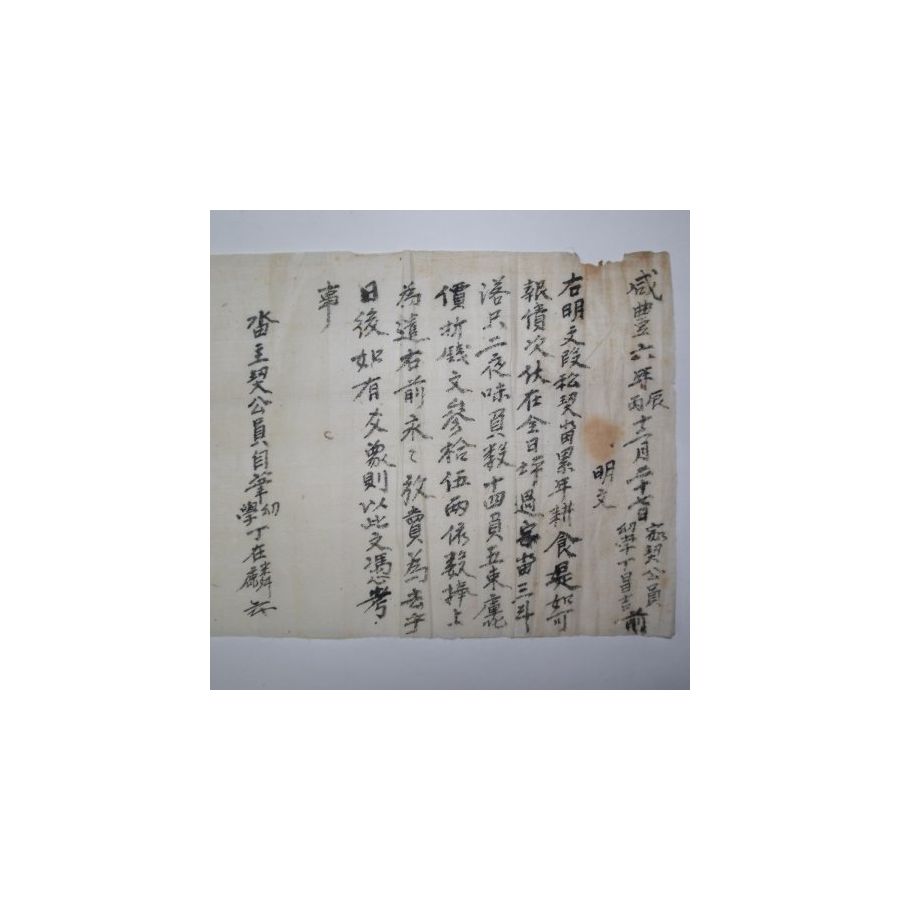 咸豊六年丙辰十二月二十七日 宗契公員幼學丁昌吉前
明文
右明文段松契畓累年耕食是如可
報債次伏在全日坪過家畓三斗
落只二夜味負數十四負五束廤
價折錢文參拾伍兩依數捧上
為遣右前永〻放賣為去乎
日後如有爻象則以此文憑考
事
畓主契公員自筆幼學丁在麟